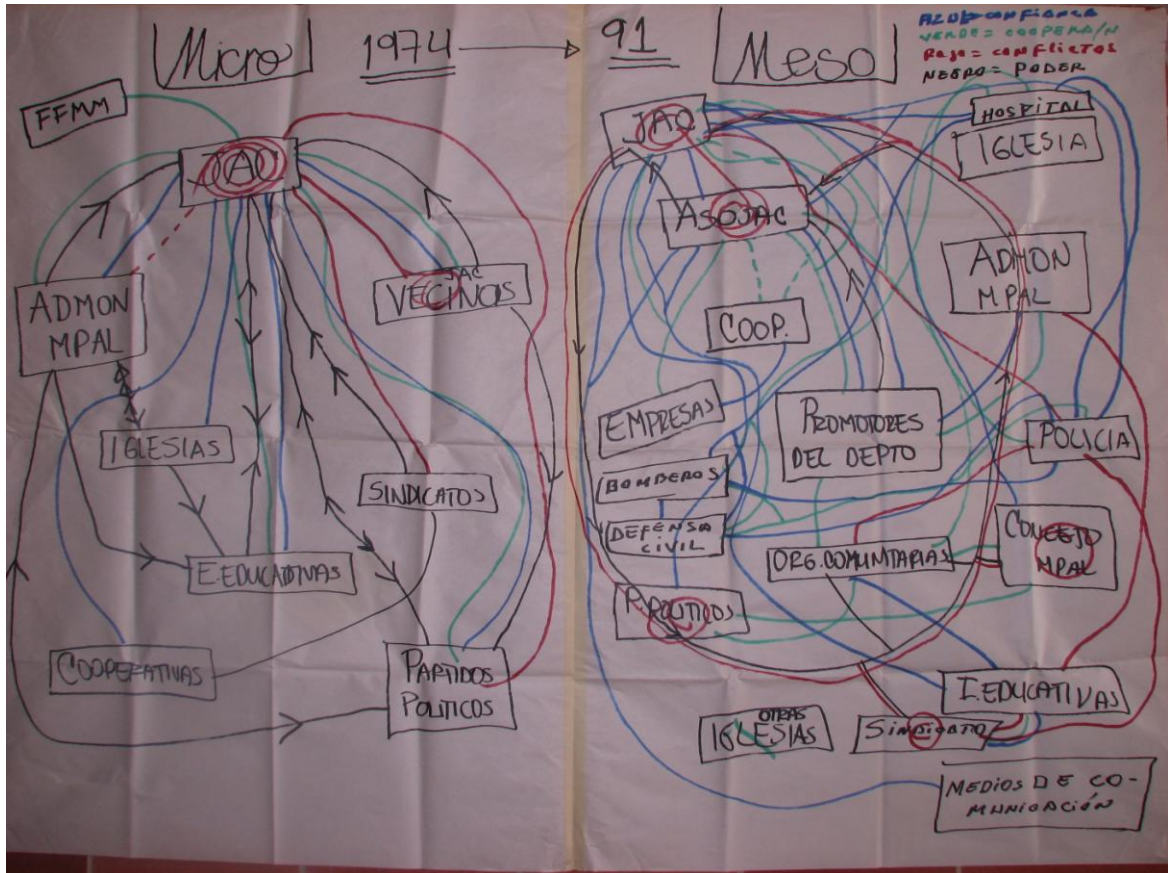 Micro
1974
91
Meso
AZUL= CONFIANZA
VERDE = COOPERA/N
Rojo = CONFLICTOS
NEGRO = PODER
FFMM
JAC
ADMON
MPAL
JAC
VECINOS
IGLESIAS
SINDICATOS
E.EDUCATIVAS
COOPERATIVAS
PARTIDOS
POLITICOS
JAC
HOSPITAL
IGLESIA
ASOJAC
ADMON
MPAL
COOP.
EMPRESAS
PROMOTORES
DEL DEPTO
POLICIA
BOMBEROS
DEFENSA
CIVIL
ORG. COMUNITARIAS
CONCEJO
MPAL
P.POLITICOS
I.EDUCATIVAS
OTRAS
IGLESIAS
SINDICATO
MEDIOS DE CO-
MUNICACIÓN